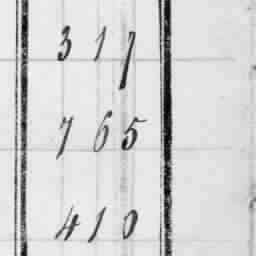 317
765
410